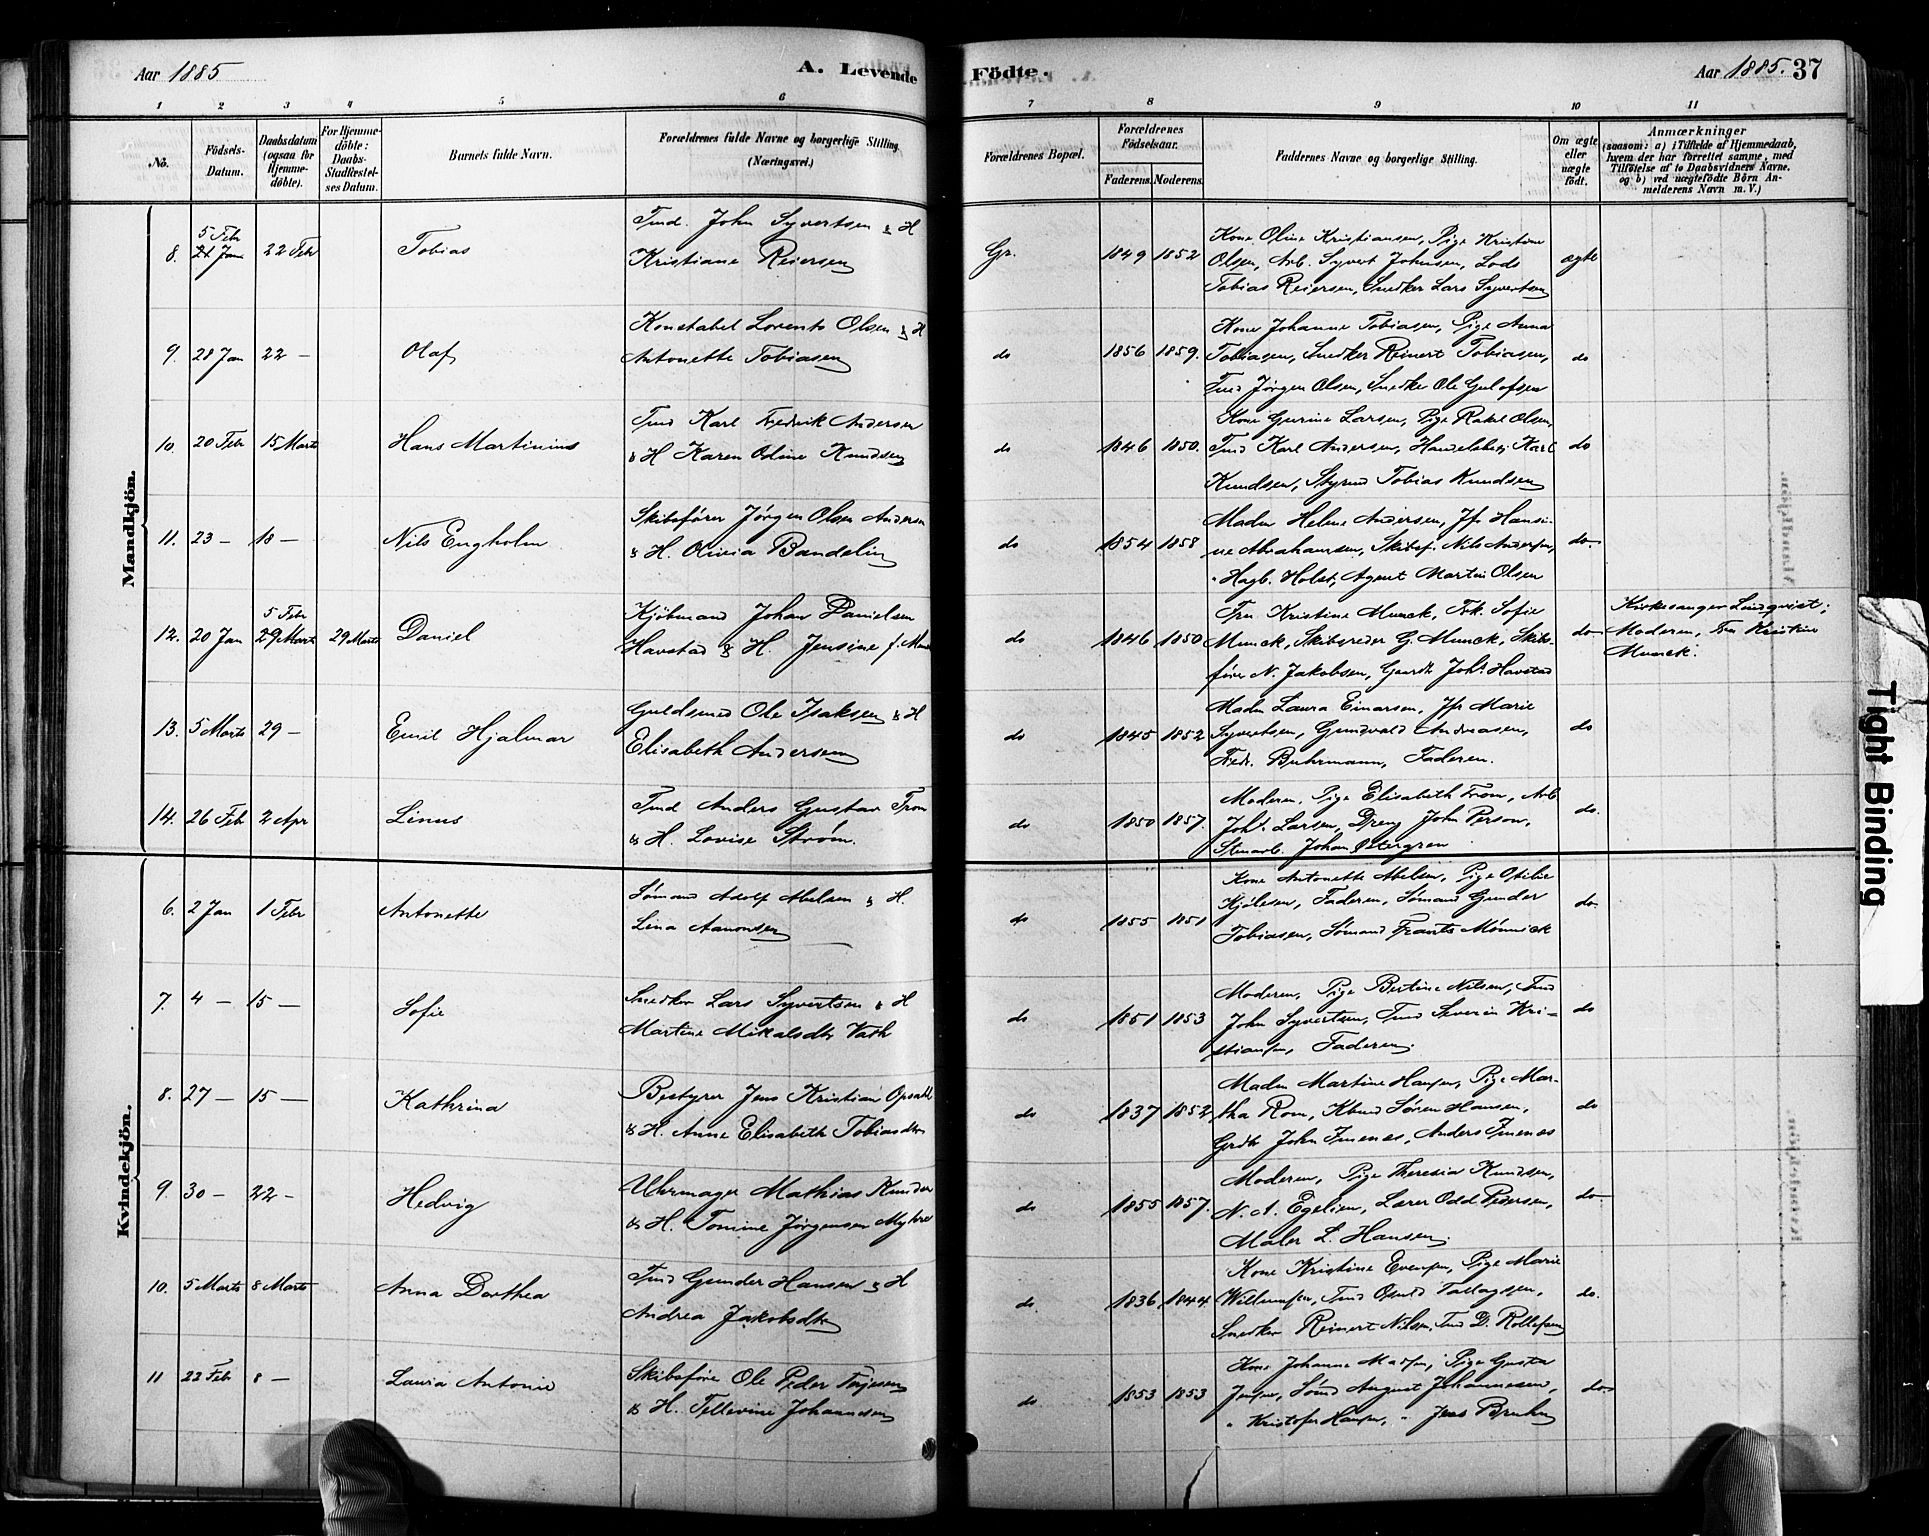 Aar 1885
A. Levende Födte.
Aar 1885. 37
1 2 3 4 5 6 7 8 9 10 11
No.
Födsels-Datum.
Daabsdatum (ogsaa for Hjemmedöbte).
For Hjemmedöbte: Daabs-Stadfæstelses Datum.
Barnets fulde Navn.
Forældrenes fulde Navne og borgerlige Stilling. (Næringsvei.)
Forældrenes Bopæl.
Forældrenes Födselsaar.
Faderens. Moderens.
Faddernes Navne og borgerlige Stilling.
Om ægte eller uægte födt.
Anmærkninger
(saasom: a) i Tilfælde af Hjemmedaab, hvem der har forrettet samme, med Tilföielse af to Daabsvidners Navne. og b) ved uægtefödte Börn Anmelderens Navn m. V.)
Mandkjön.
8. 5 Febr 22 Febr Tobias
Tmd. John Syvertsen & H
Kristiane Reiersen
Gr. 1849 1852
Kone Oline Kristiansen, Pige Kristine
Olsen, Arb. Syvert Johnsen, Lods
Tobias Reiersen, Snedker Lars Syvertsen
ægte
9. 28 Jan 22 — Olaf
Konstabel Lorents Olsen & H
Antonette Tobiasen
do 1856 1859.
Kone Johanne Tobiasen, Pige Anna
Tobiasen, Snedker Reinert Tobiasen,
Tmd Jörgen Olsen, Snedker Ole Gulofsen
do
10. 20 Febr 15 Marts Hans Martinius
Tmd Karl Fredrik Andersen
& H Karen Oline Knudsen
do 1846 1850.
Kone Gurine Larsen, Pige Rakel Olsen,
Tmd Karl Andersen, Handelsbetj Karl
Knudsen, Styrmd Tobias Knudsen
do
11. 23 — 18 — Nils Engholm
Skibsförer Jörgen Olsen Andersen
& H. Olivia Bandelin
do 1854 1858
Madm Helene Andersen, Jfr Hansi-
ne Abrahamsen, Skibsf. Nils Andersen,
" Hagb. Holst, Agent Martin Olsen
do
12. 20 Jan 5 Febr 29 Marts 29 Marts Daniel
Kjöbmand Johan Danielsen
Havstad & H. Jensine f. Munck
do 1846 1850
Fru Kristine Munck, Frk. Sofie
Munck, Skibsreder G. Munck, Skibs-
förer N. Jakobsen, Gaardb Johs Havstad
do
Kirkesanger Lindqvist;
Moderen, Fru Kristine
Munck.
13. 5 Marts 29 — Emil Hjalmar
Guldsmed Ole Isaksen & H
Elisabeth Andersen
do 1845 1852
Madm Laura Einarsen, Jfr Marie
Syvertsen, Gundvald Andreasen,
Fredr. Buhrmann, Faderen.
do
14. 26 Febr 2 Apr Linus
Tmd Anders Gustav From
& H. Lovise Ström.
do 1850 1857.
Moderen, Pige Elisabeth From, Arb
Johs. Larsen, Dreng John Person,
Stenarb. Johan Petergren
do.
Kvindekjön.
6. 2 Jan 1 Febr Antonette
Sömand Adolf Abelsen & H.
Lina Aanonsen
do 1855 1851
Kone Antonette Abelsen, Pige Otilie
Kjölesen, Faderen, Sömand Gunder
Tobiasen, Sömand Frants Mönnick
do
7. 4 — 15 — Sofie
Snedker Lars Syvertsen & H
Martine Mikalsdtr Vath
do 1851 1853
Moderen, Pige Bertine Nilsen, Tmd
John Syvertsen, Tmd Severin Kri-
stiansen, Faderen.
do
8. 27 — 15 — Kathrina
Bestyrer Jens Kristian Opsahl
& H. Anne Elisabeth Tobiasdtr
do 1837 1852
Madm Martine Hansen, Pige Mar-
tha Rom, Kbmd Sören Hansen,
Grdb John Imenes, Anders Imenes
do
9. 30 — 22 — Hedvig
Uhrmager Mathias Kunder
& H. Tomine Jörgensen Myhre
do 1855 1857.
Moderen, Pige Theresia Knudsen,
N. A. Egelien, Lærer Odd Pedersen,
Maler L. Hansen.
do
10. 5 Marts 8 Marts Anna Dorthea
Tmd Gunder Hansen & H
Andrea Jakobsdtr
do. 1836 1844
Kone Kristine Evensen, Pige Marie
Willumsen, Tmd Osuld Tallagsen,
Snedker Reinert Nilsen, Tmd D. Rollefsen
do.
11 22 Febr 8 — Laura Antonie
Skibsförer Ole Peder Terjesen
& H. Tellevine Johannesen
do 1853 1853
Kone Johanne Madsen, Pige Gusta
Jensen, Sömd August Johannesen,
" Kristofer Hansen, " Jens Bruhn
do
Tight Binding